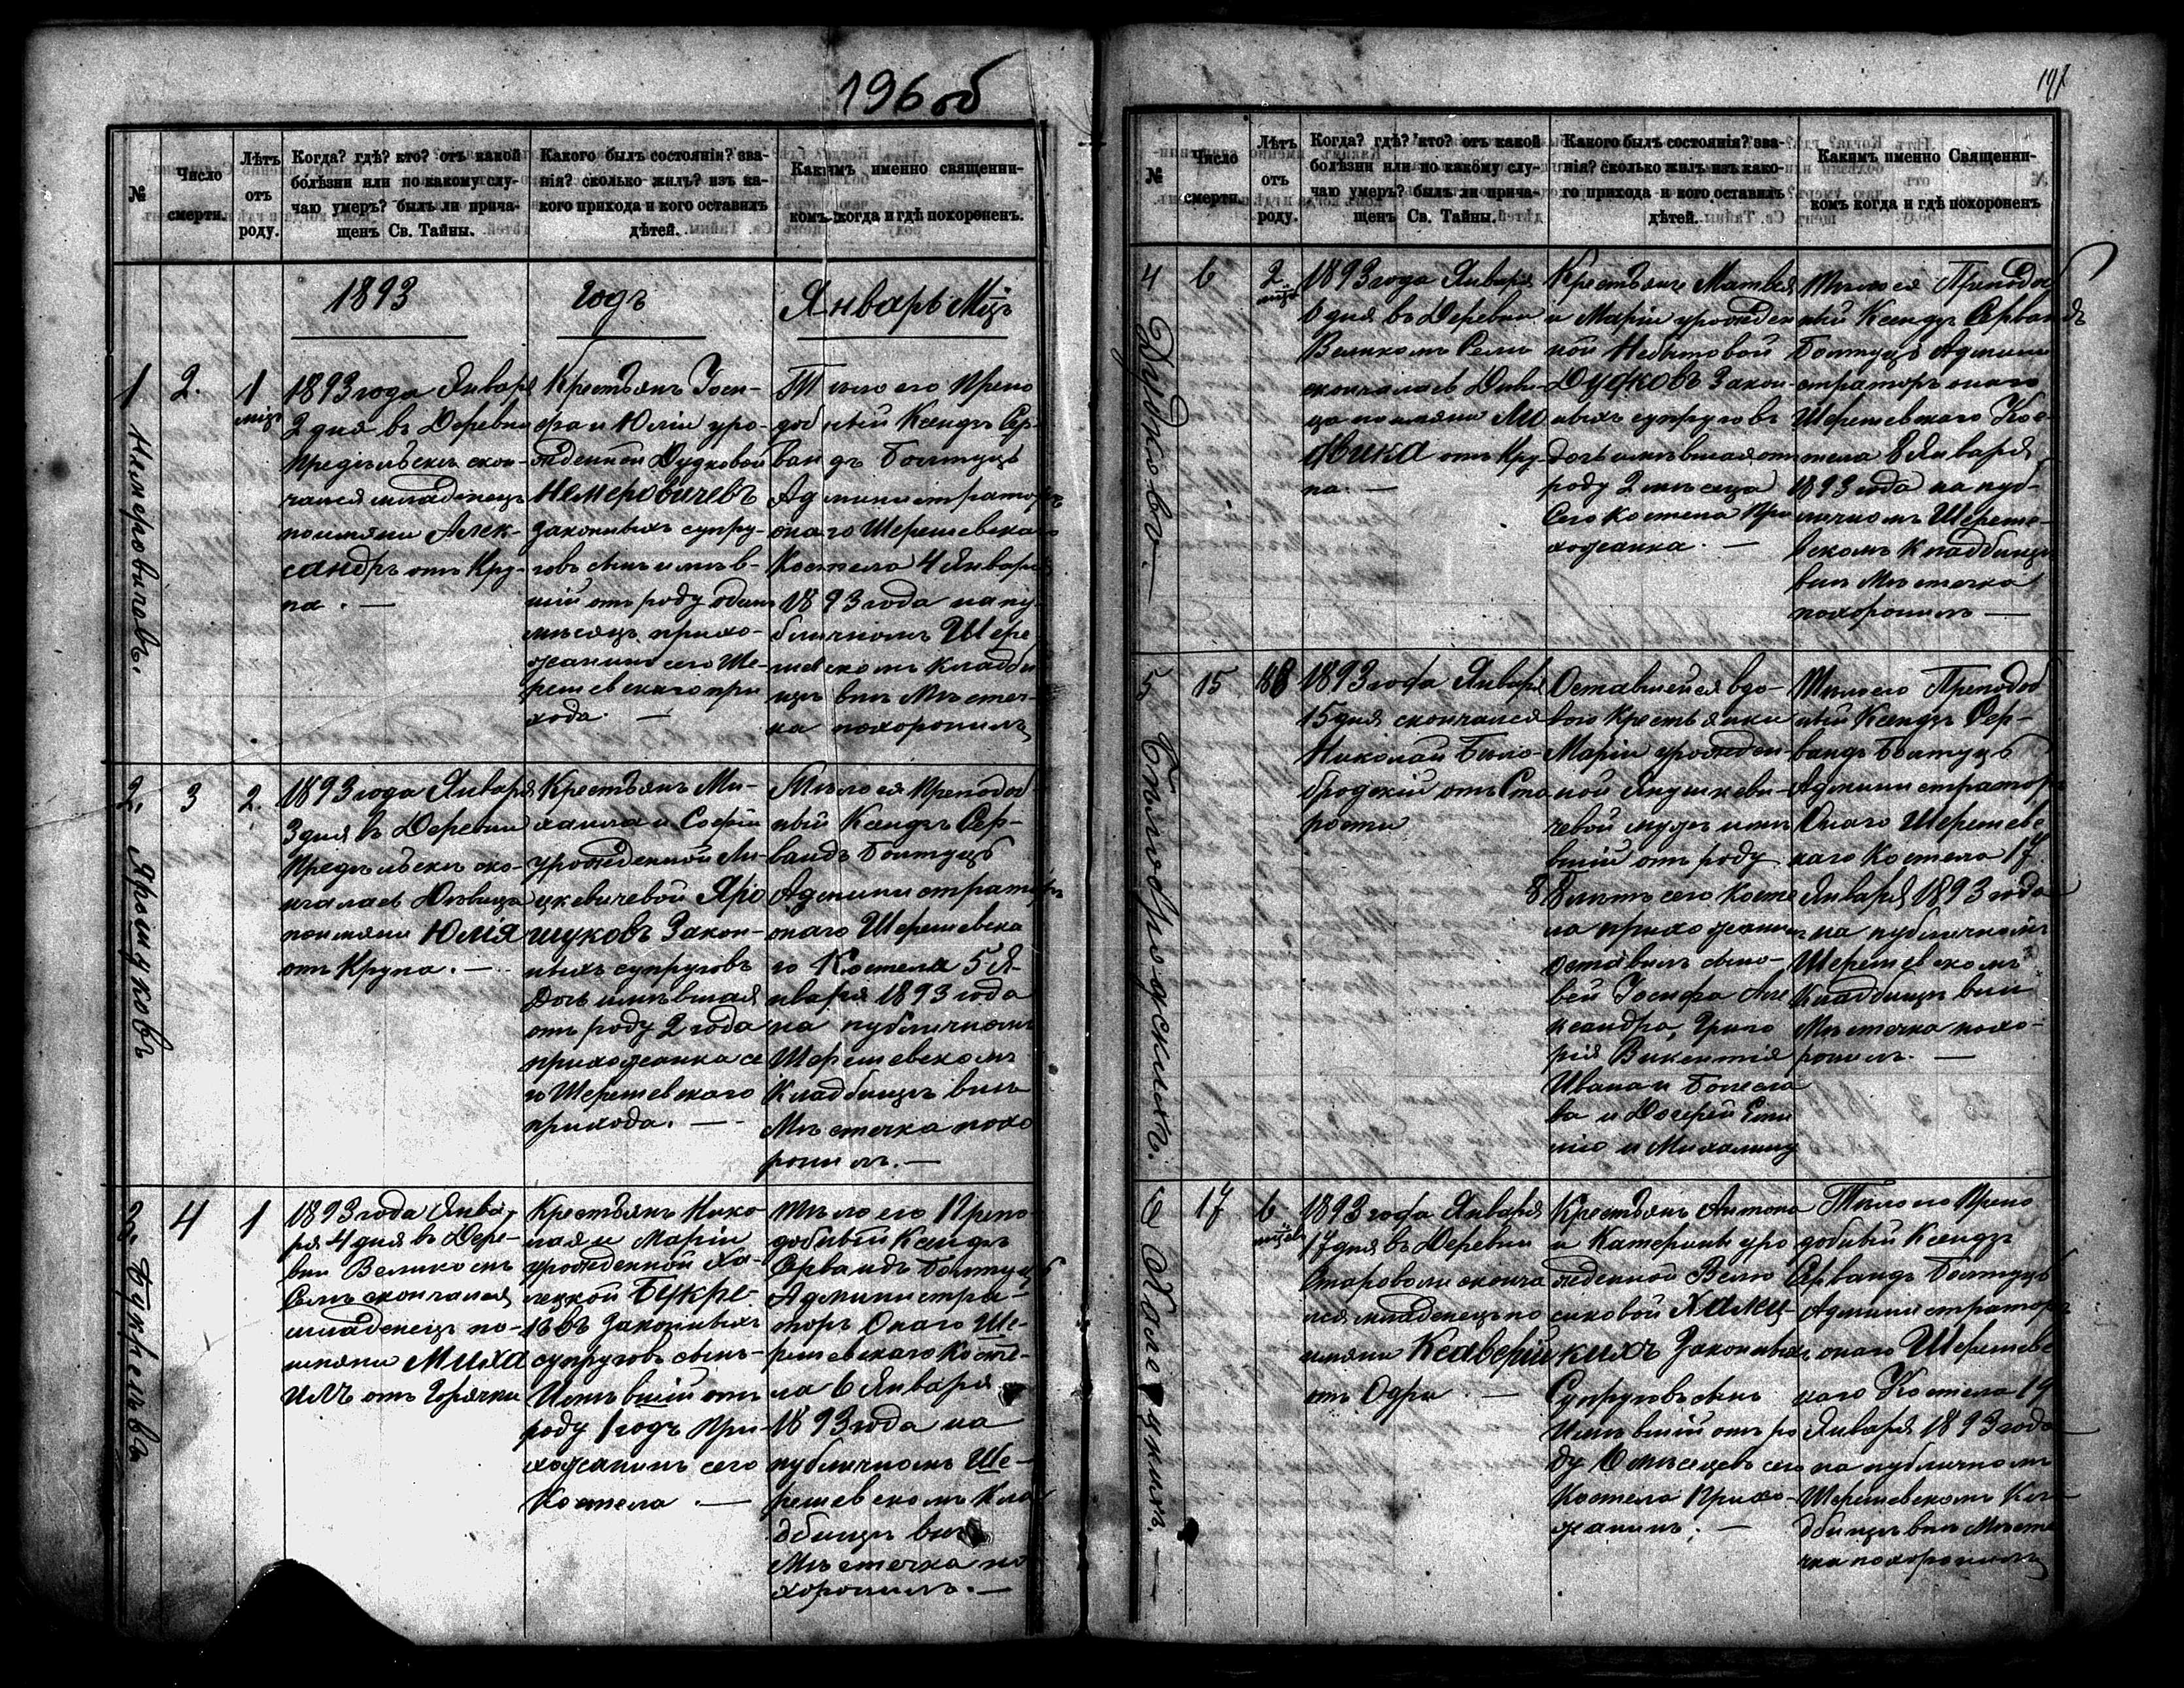 196 об
№
Число
смерти.
Лѣтъ
отъ
роду.
Когда? гдѣ? кто? отъ какой
болѣзни или по какому слу-
чаю умеръ? былъ ли прича-
щенъ Св. Тайны.
Какого былъ состоянія? зва-
нія? сколько жилъ? изъ ка-
кого прихода и кого оставилъ
дѣтей.
Какимъ именно священни-
комъ когда и гдѣ похороненъ.
1893
годъ
Январь Мцъ
1
Немеровичовъ.
2.
1
мцъ
1893 года Января
2 дня въ Деревни
скон-
чался младенецъ
по имяни Алек-
сандръ отъ Кру-
па. —
Крестьянъ Іоси-
фа и Юліи уро-
жденной Дудковой
Немеровичевъ
законныхъ супру-
говъ сынъ имѣв-
шій отъ роду одинъ
мѣсяцъ прихо-
жанинъ сего Ше-
решевскаго при
хода. —
Тѣло его Препо
добный Ксендзъ Сер-
вандъ Болтуць
Администраторъ
онаго Шерешевскаго
Костела 4 Января
1893 года на пу-
бличномъ Шере
шевскомъ кладби
щѣ внѣ Мѣстеч-
ка похоронилъ
2.
Ярощуковъ
3
2.
1893 года Января
3 дня въ Деревни
ско-
нчалась Дѣвица
по имяни Юлія
отъ Крупа. —
Крестьянъ Ми-
хаила и Софіи
урожденной Ли-
цкевичевой Яро
щуковъ Закон-
ныхъ супруговъ
Дочь имѣвшая
отъ роду 2 года
прихожанка се
го Шерешевскаго
прихода. —
Тѣло ея Преподоб
ный Ксендзъ Сер-
вандъ Болтуць
Администраторъ
онаго Шерешевска
го Костела 5 Я-
нваря 1893 года
на публичномъ
Шерешевскомъ
Кладбищѣ внѣ
Мѣстечка похо
ронилъ. —
3.
Букрѣевъ
4
1
1893 года Янва-
ря 4 дня въ Дере-
вни Великомъ
Селѣ скончался
младенецъ по-
имяни Миха
илъ отъ Горячки
Крестьянъ Нико
лая и Маріи
урожденной Ха-
лецкой Букре-
законныхъ
супруговъ сынъ
Имѣвшій отъ
роду 1 годъ При-
хожанинъ сего
Костела. —
Тѣло его Препо-
добный Ксендзъ
Сервандъ Болтуць
Администра-
торъ Онаго Ше-
решевскаго Косте-
ла 6 Января
1893 года на
публичномъ Ше-
решевскомъ Кла
дбищѣ внѣ
Мѣстечка по
хоронилъ. —
197
№
Число
смерти.
Лѣтъ
отъ
роду.
Когда? гдѣ? кто? отъ какой
болѣзни или по какому слу-
чаю умеръ? былъ ли прича-
щенъ Св. Тайны.
Какого былъ состоянія? зва-
нія? сколько жилъ изъ како-
го прихода и кого оставилъ
дѣтей.
Какимъ именно Священни-
комъ когда и гдѣ похороненъ
4
Дудковъ. —
6
2
1893 года Января
6 дня въ Деревни
Великомъ Селѣ
скончалась Дѣви-
ца по имяни Лю
двика отъ Кру-
па. —
Крестьянъ Матвѣя
и Маріи урожден
ной
Дудковъ Закон-
ныхъ супруговъ
дочь имѣвшая отъ
роду 2 мѣсяца
Сего Костела При
хожанка. —
Тѣло ея Преподоб
ный Ксендзъ Сервандъ
Болтуць Админи
страторъ онаго
Шерешевскаго Кос-
тела 8 Января
1893 года на пуб-
личномъ Шереше-
вскомъ Кладбищѣ
внѣ Мѣстечка
похоронилъ —
5
Бѣлобродскихъ.
15
88
1893 года Января
15 дня скончался
Николай Бѣло-
бродскій отъ Ста
рости
Оставшейся вдо-
вою Крестьянки
Маріи урожден-
ной Янушкеви-
чевой мужъ имѣ
вшій отъ роду
88 лѣтъ сего Косте
ла прихожанинъ
оставилъ сыно-
вей Іосифа Але
ксандра, Григо
рія Викентія
Ивана и Болесла
ва и Дочерей
и Михалину
Тѣло его Преподоб
ный Ксендзъ Сер-
вандъ Болтуць
Администраторъ
Онаго Шерешевс
каго Костела 17
Января 1893 года
на публичномъ
Шерешевскомъ
Кладбищѣ внѣ
Мѣстечка похо-
ронилъ. —
6
17
6
1893 года Января
17 дня въ Деревни
Староволи сконча
лся младенецъ по
имяни Ксаверій
отъ Одры. —
Крестьянъ Антона
и Катерины уро
жденной
законныхъ
Супруговъ сынъ
Имѣвшій отъ ро
ду 6 мѣсецевъ сего
Костела Прихо-
жанинъ. —
Тѣло его Препо
добный Ксендзъ
Сервандъ Болтуць
Администраторъ
онаго Шерешевс
каго Костела 19
Января 1893 года
на публичномъ
Шерешевскомъ Кла
дбищѣ внѣ Мѣсте
чка похоронилъ